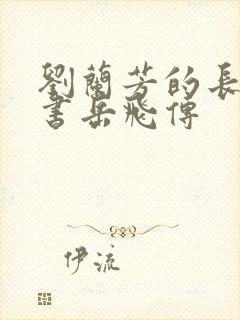 劉蘭芳的長
書岳飛傳
伊流